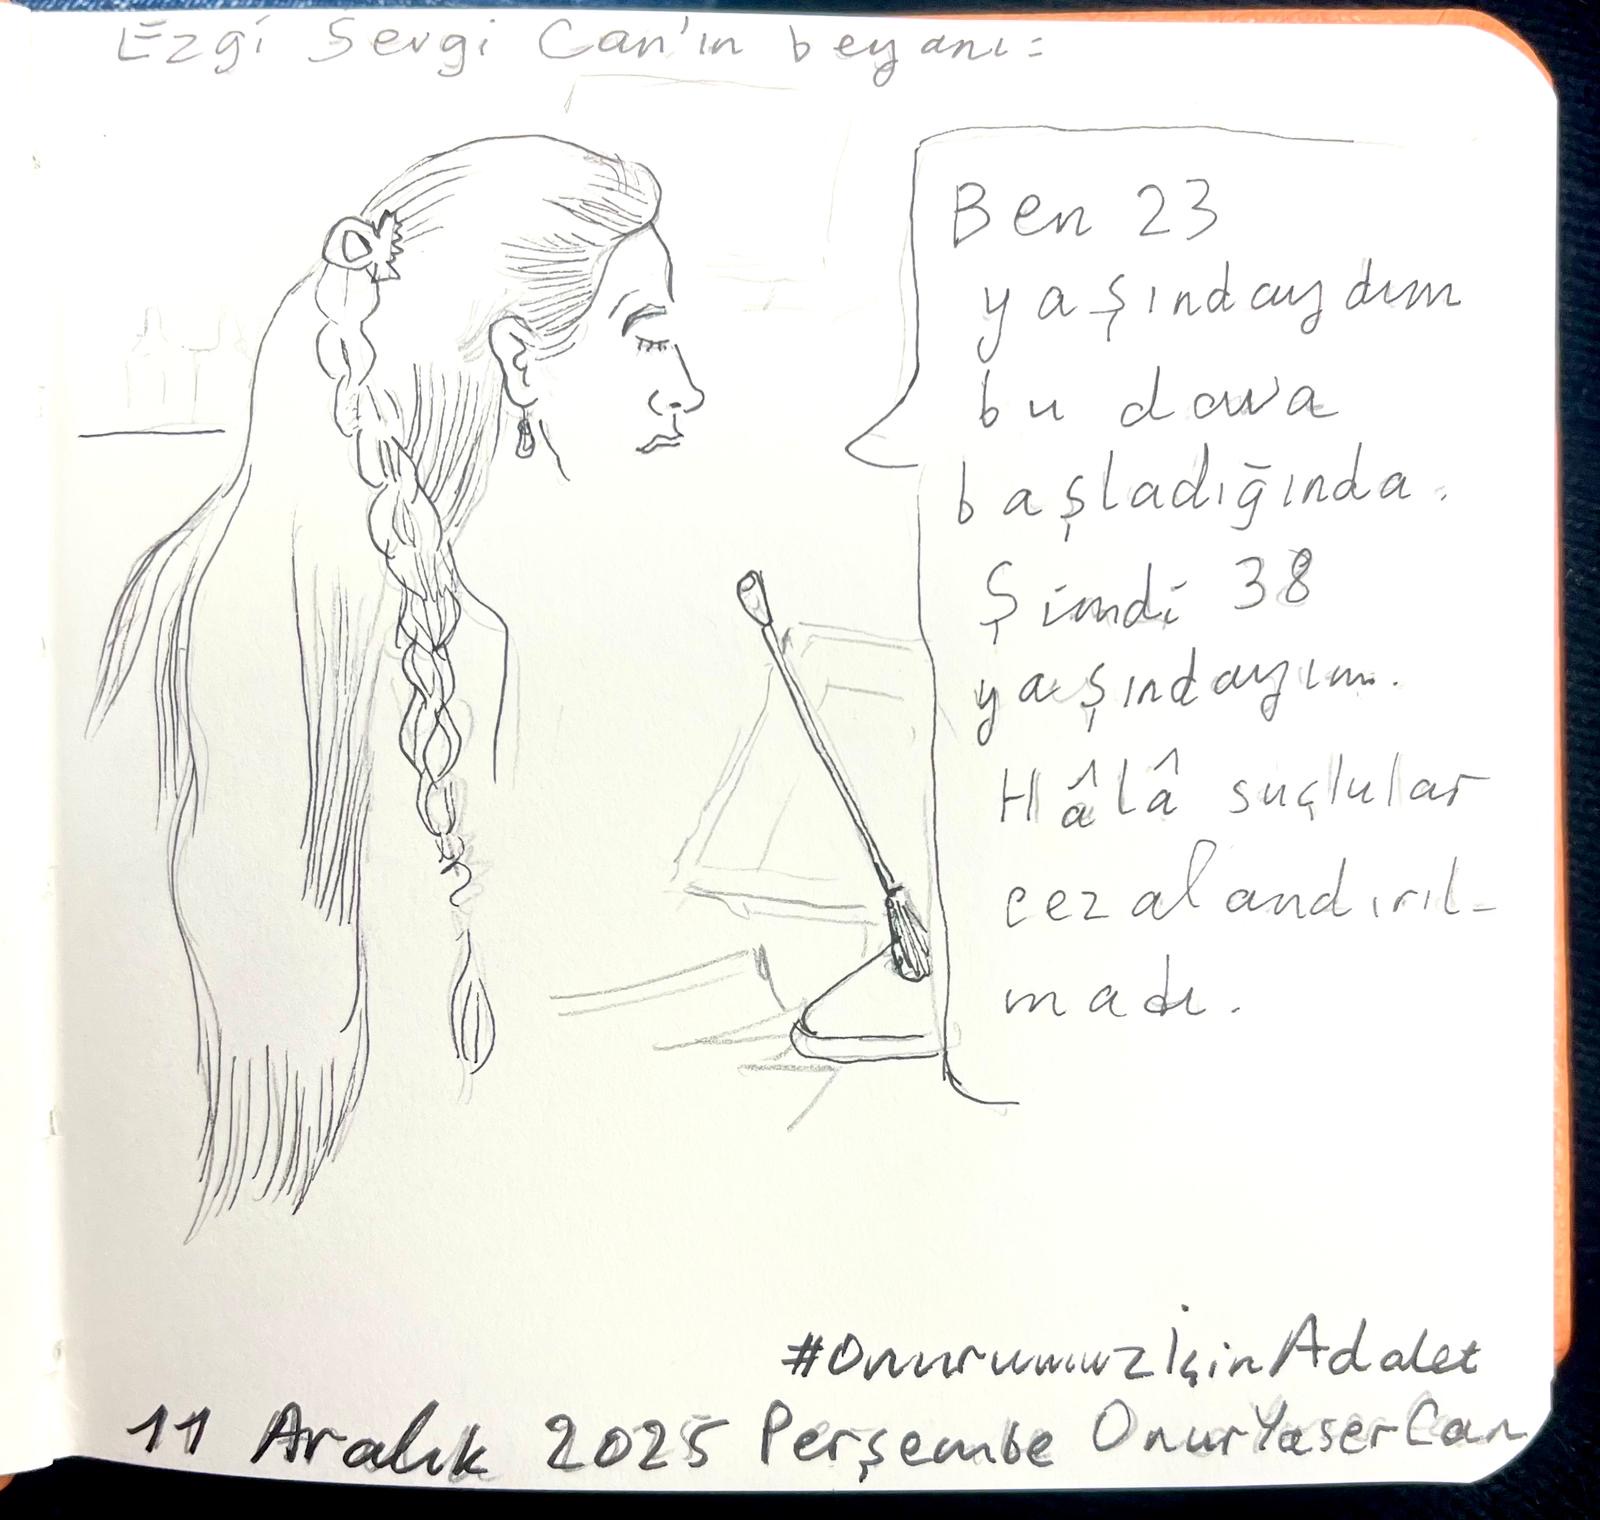 Ezgi Sevgi Can'ın beyanı:
Ben 23
yaşındaydım
bu dava
başladığında.
Şimdi 38
yaşındayım.
Hâlâ suçlular
cezalandırıl-
madı.
#OnurumuzİçinAdalet
11 Aralık 2025 Perşembe OnurYaserCan